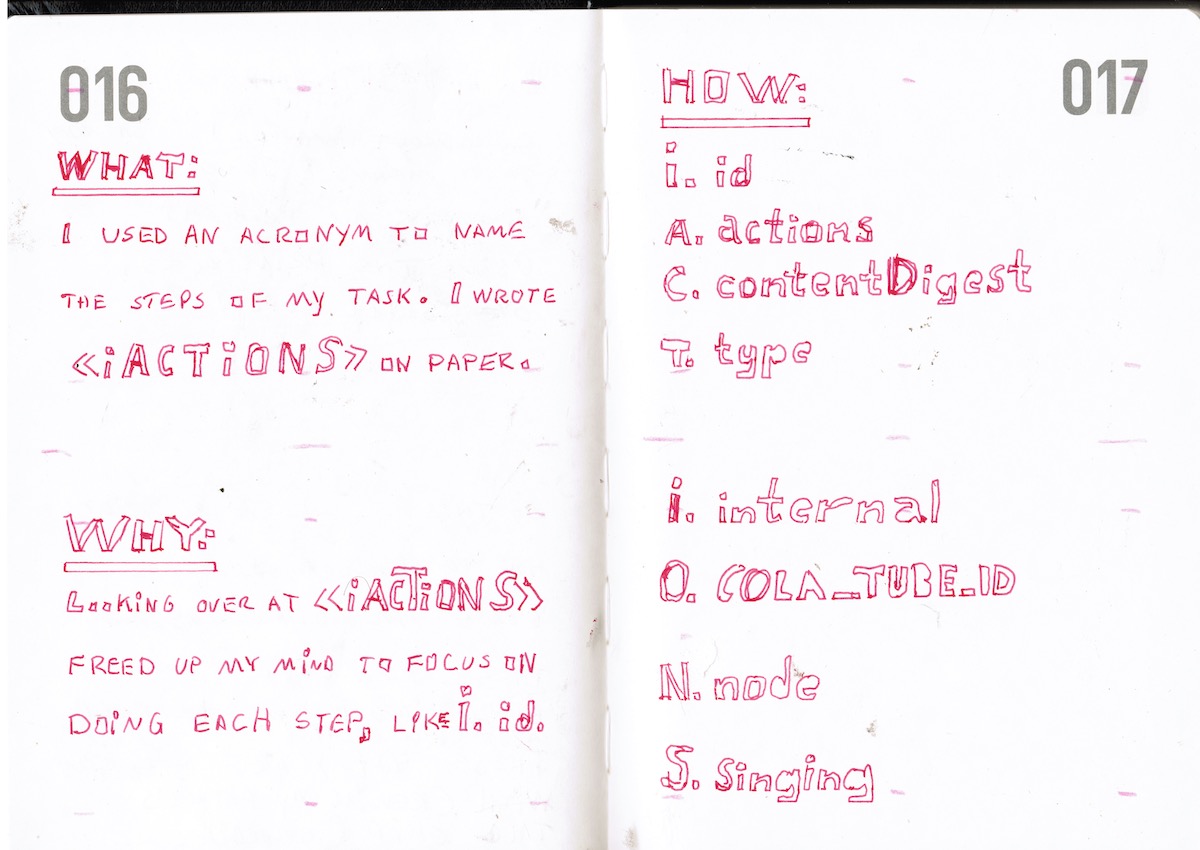 016
WHAT:
I USED AN ACRONYM TO NAME
THE STEPS OF MY TASK. I WROTE
«iACTiONS» ON PAPER.
WHY:
LOOKING OVER AT «iACTiONS»
FREED UP MY MiND TO FOCUS ON
DOiNG EACH STEP, LIKE i. id.
017
HOW:
i. id
A. actions
C. contentDigest
T. type
i. internal
O. COLA_TUBE_ID
N. node
S. Singing